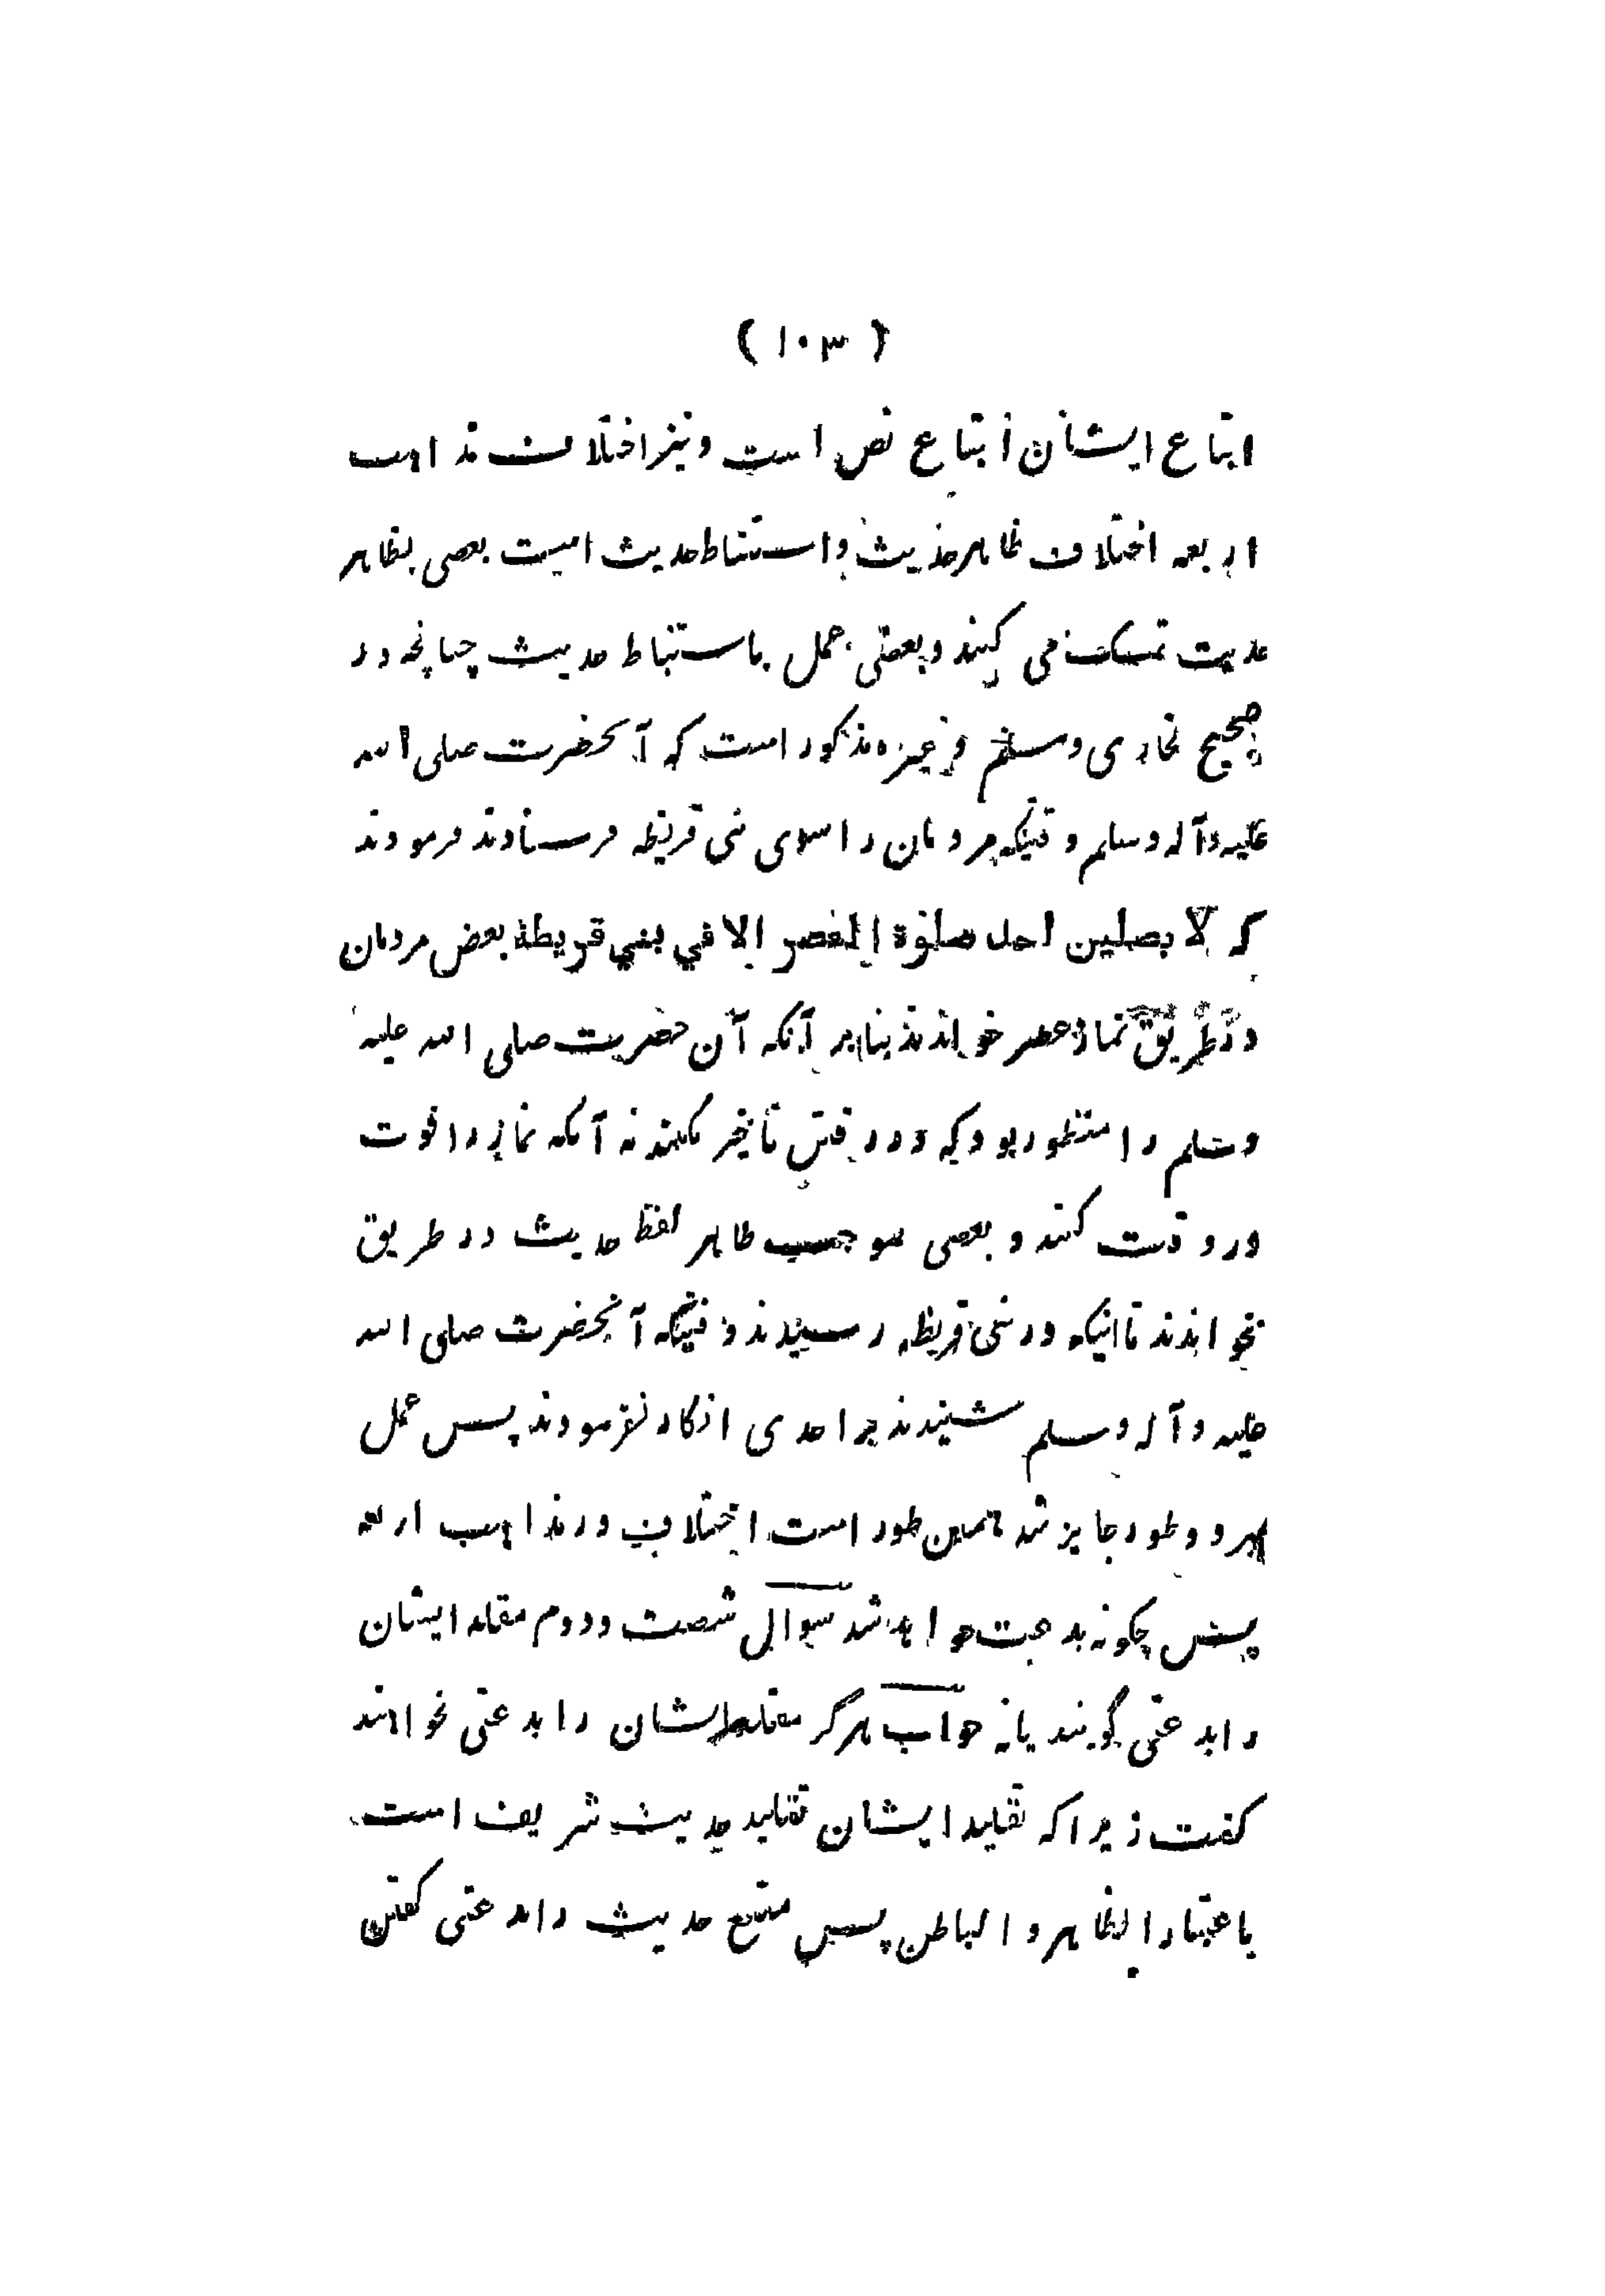 ( ۱۰۳ )
اتباع ایشان اتباع نص است و نیز اختلاف مذاهب
اربعه اختلاف ظاهر حدیث و استنباط حدیث است بعضی بظاهر
حدیث تمسک می کنند و بعضی عمل باستنباط حدیث چنانچه در
صحیح بخاری و مسلم و غیره مذکور است که آنحضرت صلی الله
علیه و آله و سلم وقتیکه مردمان را سوی بنی قریظه فرستادند فرمودند
که لا يصلين احد صلوة العصر الا في بني قريظة بعض مردمان
در طریق نماز عصر خواندند بنابر آنکه آن حضرت صلی الله علیه
وسلم را منظور بود که در رفتن تأخیر نکنند نه آنکه نماز را فوت
در وقت کنند و بعضی بموجب ظاهر لفظ حدیث در طریق
نخواندند تا اینکه در بنی قریظه رسیدند وقتیکه آنحضرت صلی الله
علیه و آله و سلم شنیدند بر احدی انکار نفرمودند پس عمل
بهر دو طور جایز شد همین طور است اختلاف در مذاهب اربعه
پس چگونه بدعت خواهد شد سوال شصت و دوم مقلد ایشان
را بدعتی گویند یا نه جواب هرگز مقلد ایشان را بدعتی نخواهند
گفت زیرا که تقلید ایشان تقلید حدیث شریف است
باعتبار الظاهر و الباطن پس متبع حدیث را بدعتی گفتن